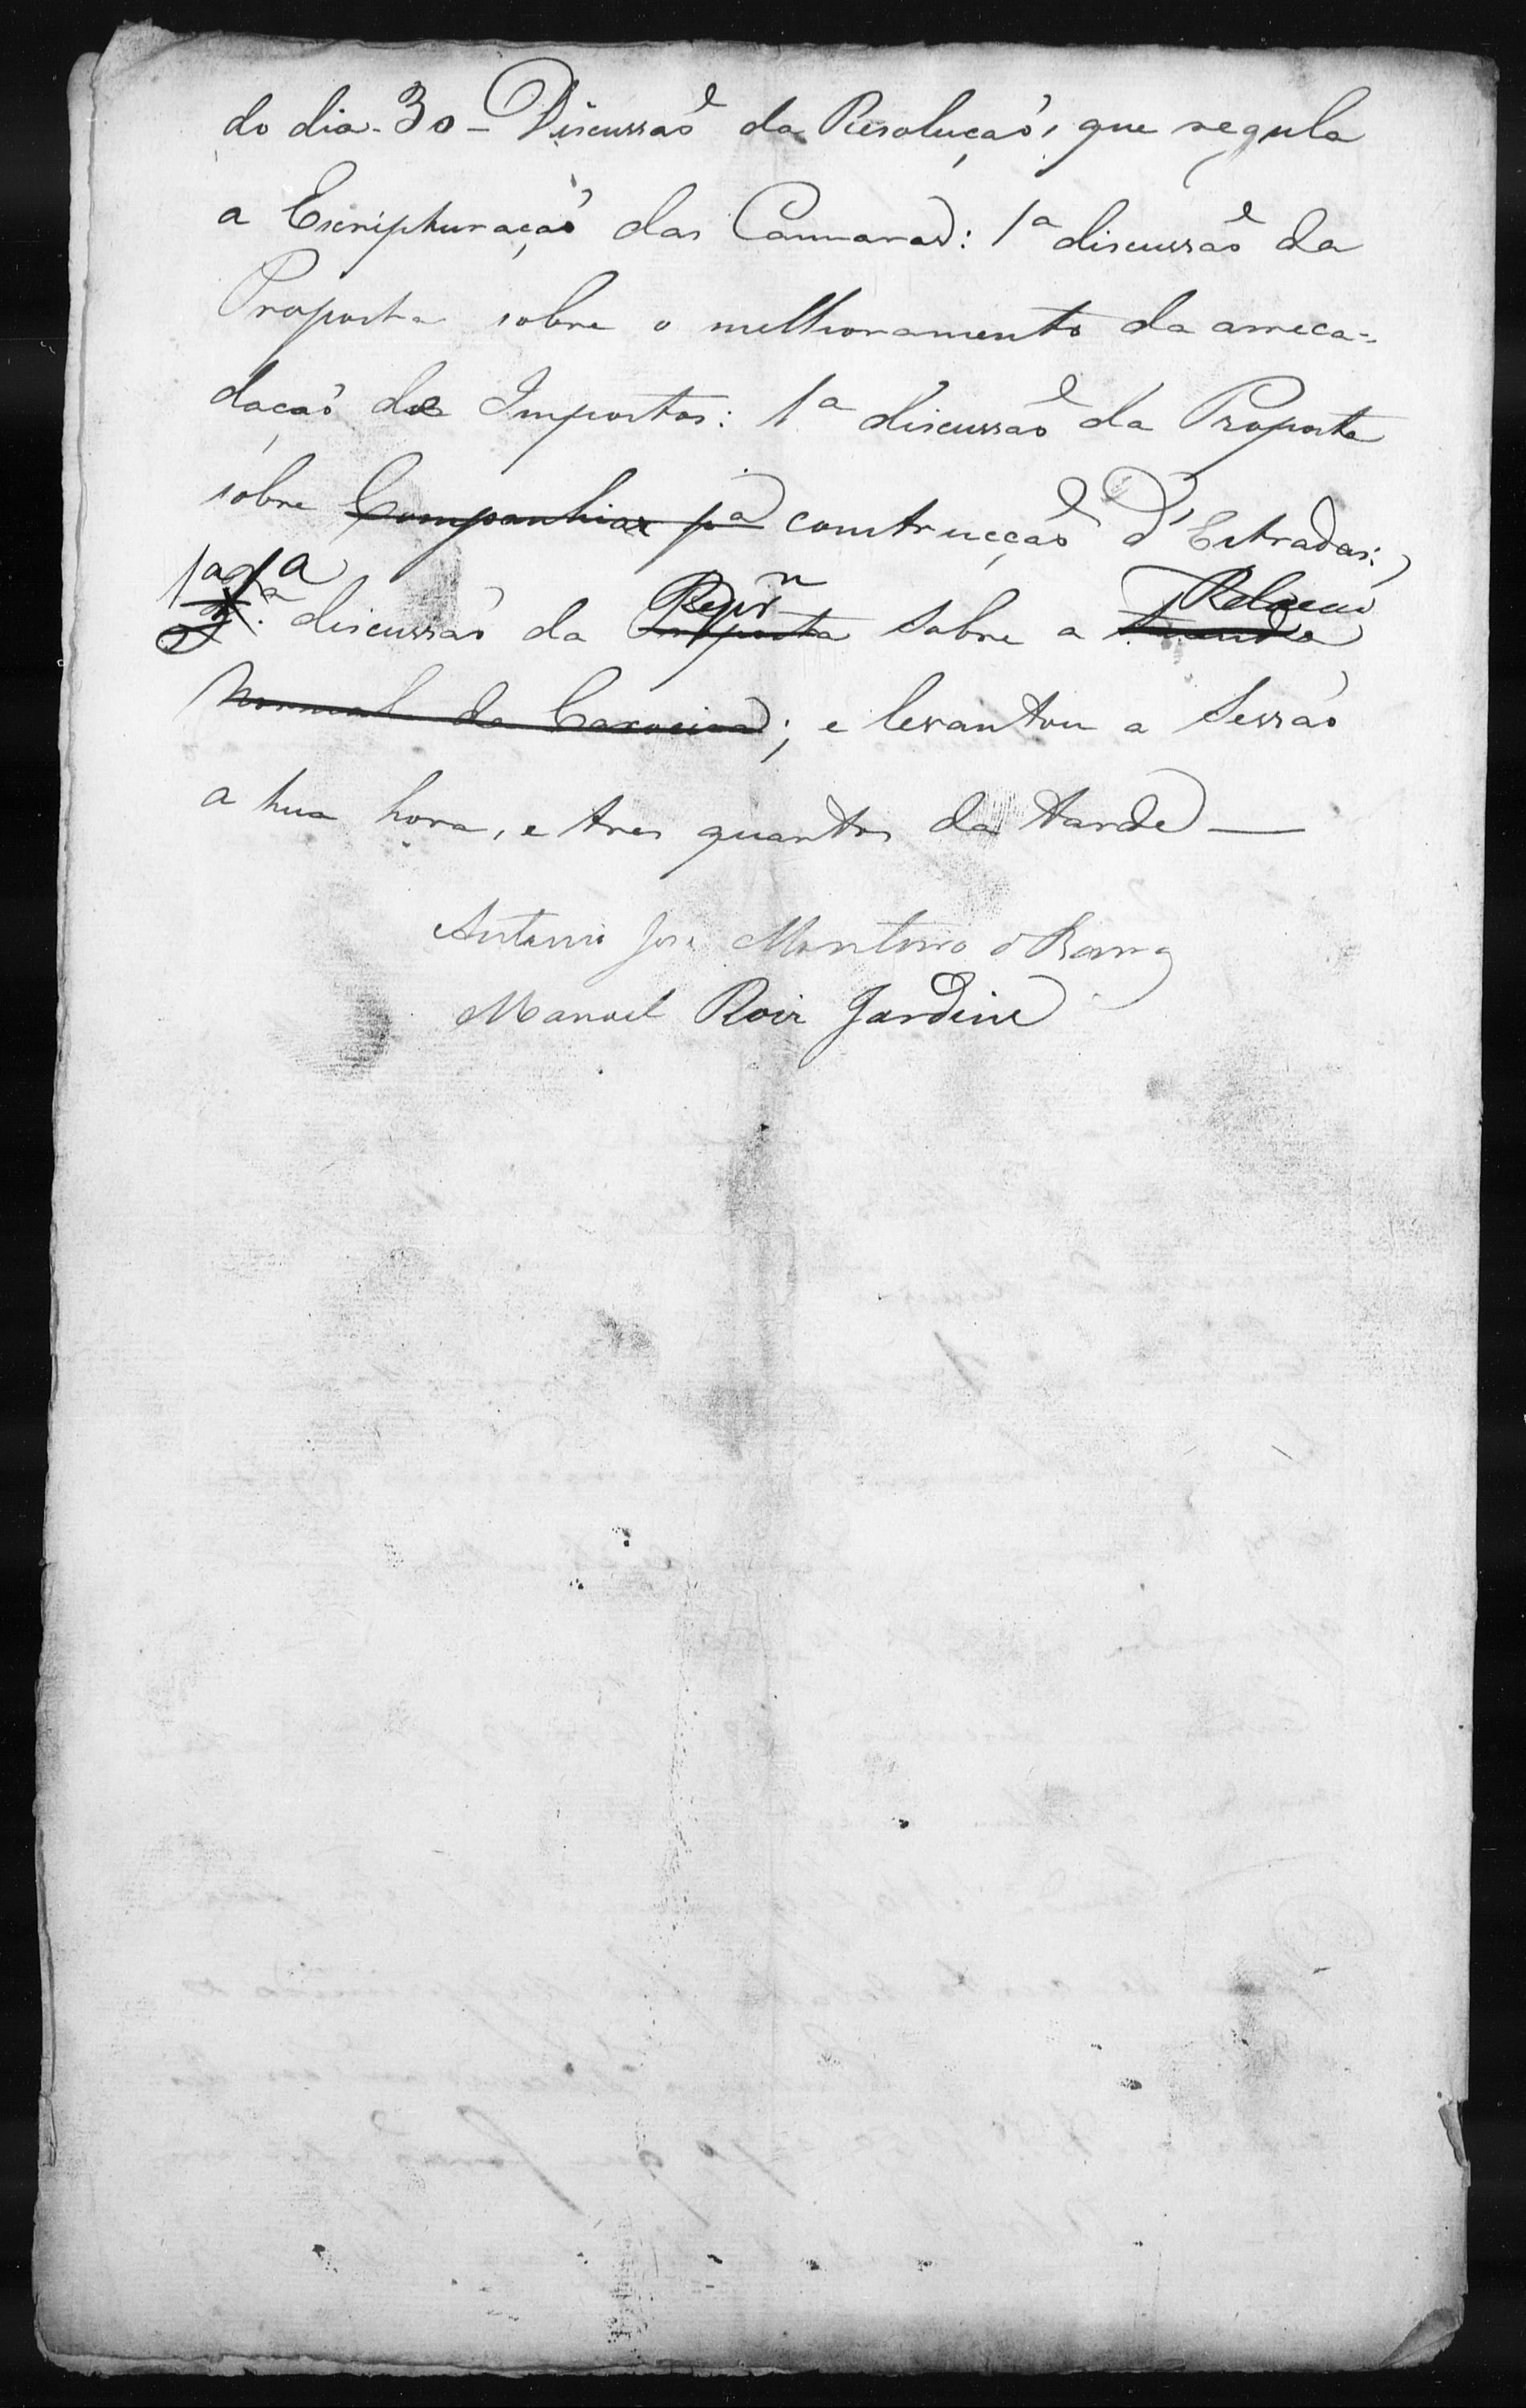 do dia 30 - Discussaõ da Resoluçaõ, que regula
a Escripturaçaõ das Camaras: 1ª discussaõ da
Proposta sobre o melhoramento da arreca-
daçaõ de Impostos: 1ª discussaõ da Proposta
sobre Companhias pª construcçaõ d'Estradas:
1ª discussaõ da Proposta sobre a
Normal da; e levantou a Sessaõ
a hua hora, e tres quartos da tarde —
Antonio José Monteiro d Barros
Manoel Roiz Jardim